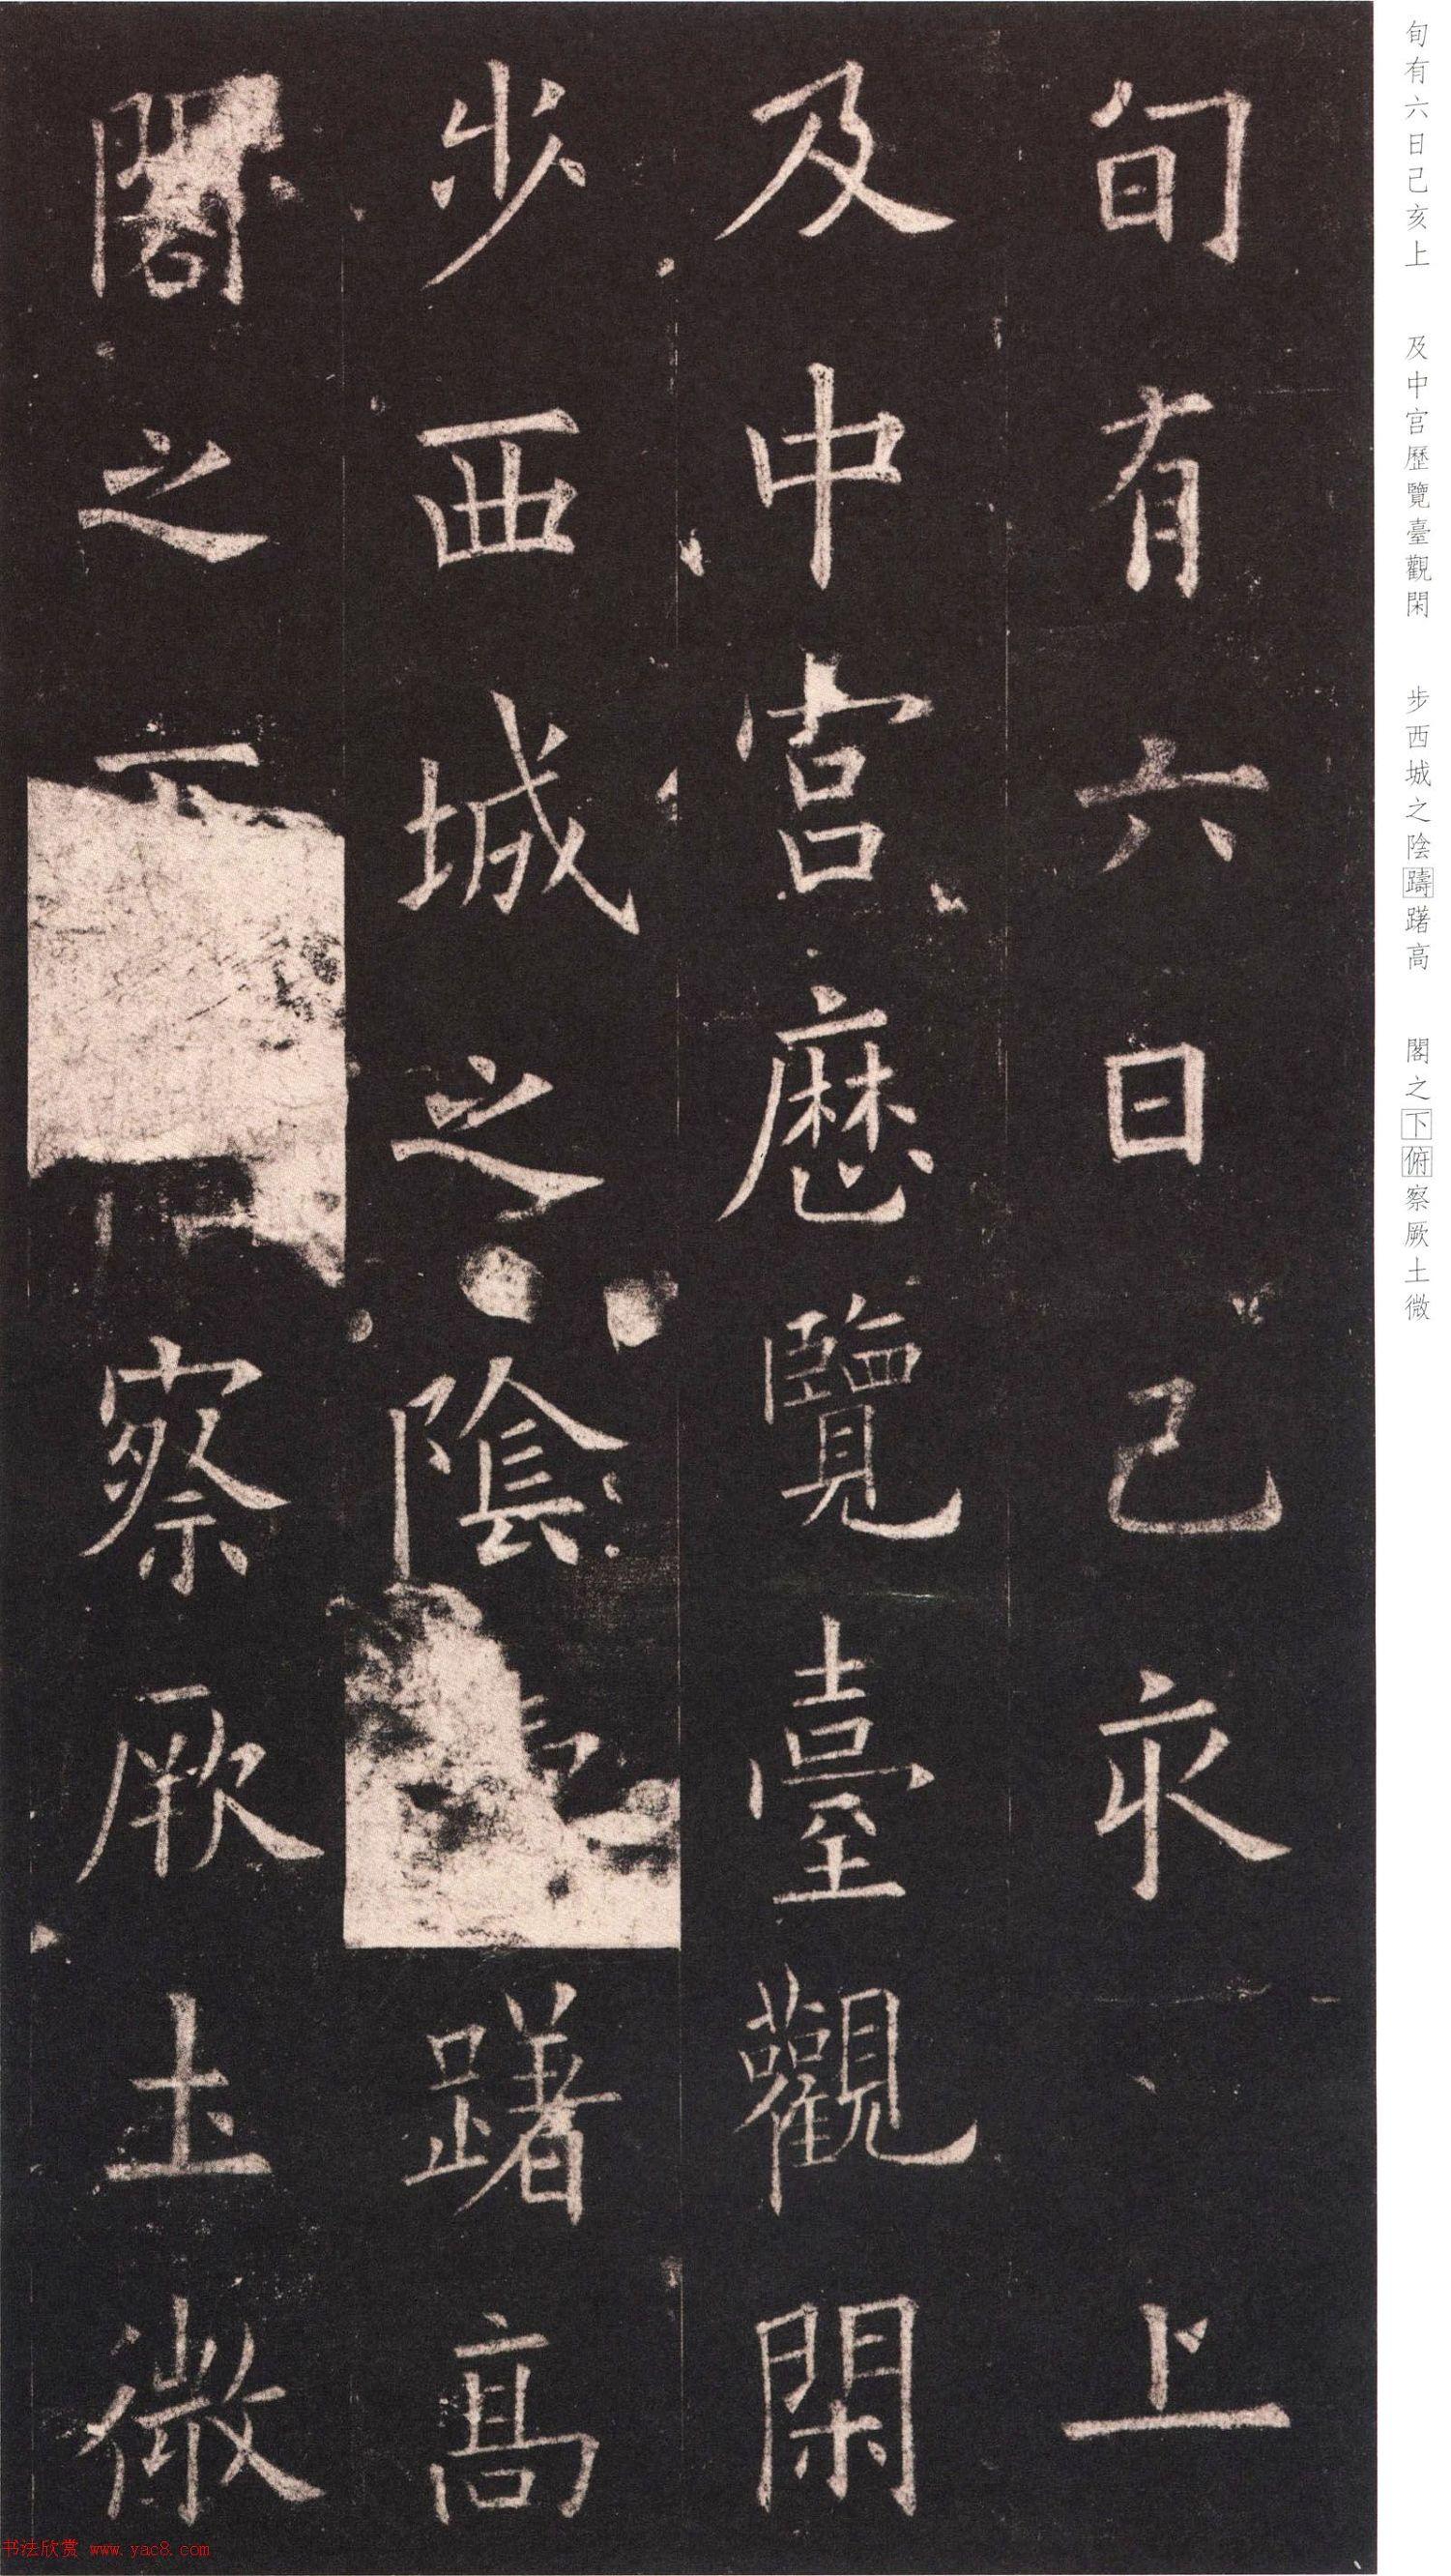 旬有六日己亥上
及中宫歷覽臺觀閑
步西城之陰躊躇高
閣之下俯察厥土微
旬有六日己亥上
及中宮歷覽臺觀閑
步西城之陰躇高
閣之下察厥土微
书法欣赏 www.yac8.com